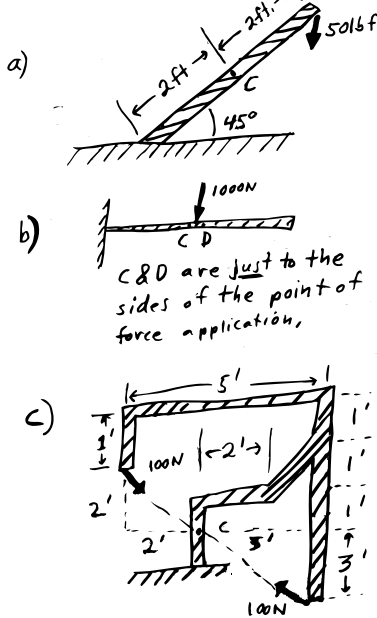 a)
2ft
2ft.
50lbf
C
45°
b)
1000N
C D
C & D are just to the
sides of the point of
force application,
c)
5'
1'
1'
100N
2'
1'
1'
2'
C
2'
3'
3'
100N